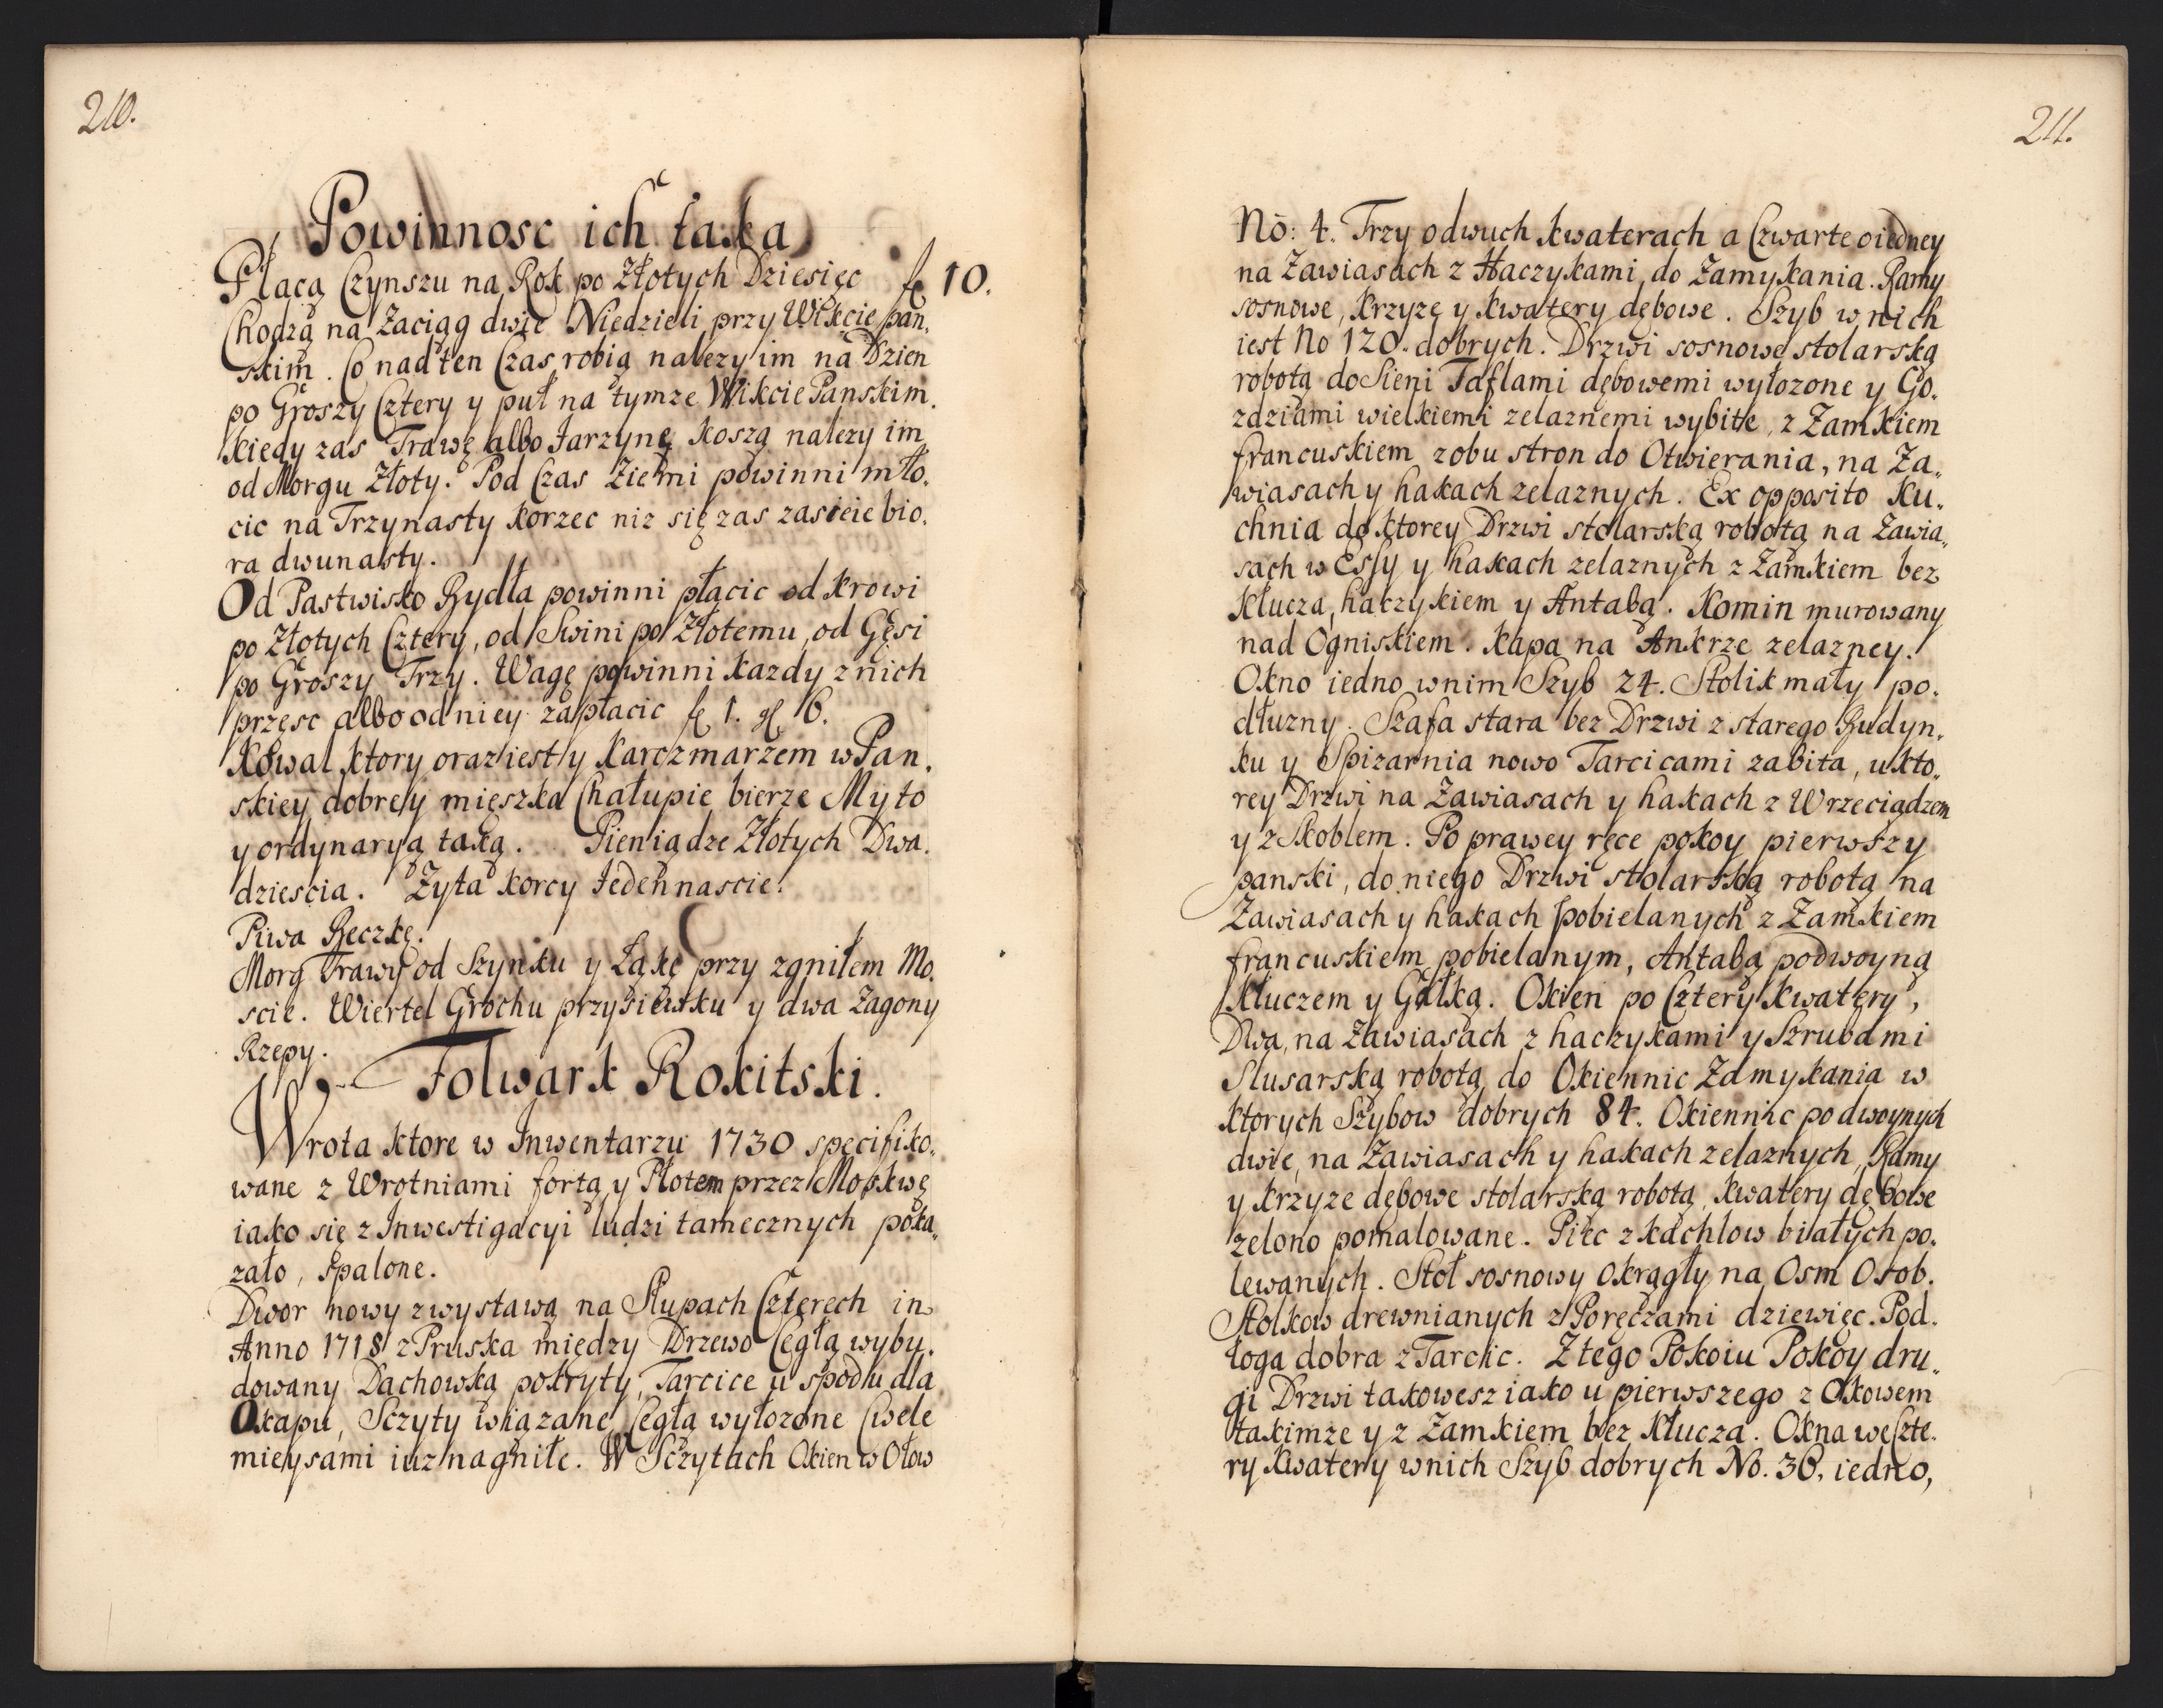 210.
Powinnosc ich taka
Płacą Czynszu na Rok po Złotych Dziesięc fl 10.
Chodzą na Zaciąg dwie Niedzieli przy Wikcie pan,
skim. Co nad ten Czas robią nalezy im na Dzien
po Groszy Cztery y puł na tymze Wikcie Panskim.
kiedy zas Trawę albo Jarzynę koszą nalezy im
od Morgu Złoty. Pod Czas Ziemi powinni mło,
cic na Trzynasty Korzec niz się zas zasieie bio,
ra dwunasty.
Od Pastwisko Bydła powinni płącic od krowi
po Złotych Cztery, od Swini po Złotemu, od Gęsi
po Groszy Trzy. Wagę powinni kazdy z nich
przęsc albo od niey zapłacic fl 1. gl 6.
Kowal ktory oraz iest y Karczmarzem w Pan,
skiey dobrey mięszka Chałupie bierze Myto
y ordynaryą taką. Pieniądze Złotych Dwa,
dziescia. Zyta korcy Jedennascie.
Piwa Beczkę.
Morg Trawy od Szynku y Łąkę przy zgniłem Mo,
scie. Wiertel Grochu przysiewku y dwa Zagony
Rzepy.
Folwark Rokitski.
Wrota ktore w Inwentarzu 1730 specifiko,
wane z Wrotniami fortą y Płotem przez Moskwę
iako się z Inwestigacyi ludzi tamecznych poka,
zało, spalone.
Dwor nowy z wystawą na Słupach Czterech in
Anno 1718 z Pruska między Drzewo Cegłą wybu,
dowany Dachowką pokryty, Tarcice u spodku dla
Okapu, Sczyty wiązane Cegłą wyłozone Cwele
mieysami iuz nagniłe. W Sczytach Okien w Ołow
211.
No: 4. Trzy odwuch kwaterach a Czwarte o iedney
na Zawiasach z Haczykami do Zamykania. Ramy
sosnowe, krzyzę y kwatery dębowe. Szyb w nich
iest No 120. dobrych. Drzwi sosnowe stolarską
robotą do Sieni Taflami dębowemi wyłozone y Go,
zdziami wielkiemi zelaznemi wybite, z Zamkiem
francuskiem z obu stron do Otwierania, na Za,
wiasach y hakach zelaznych. Ex opposito Ku,
chnia do ktorey Drzwi stolarską robotą na Zawia,
sach w Essy y hakach zelaznych z Zamkiem bez
Klucza, haczykiem y Antabą. Komin murowany
nad Ogniskiem. Kapa na Ankrze zelazney.
Okno iedno w nim Szyb 24. Stolik mały po,
dłuzny. Szafa stara bez Drzwi z starego Budyn,
ku y Spizarnia nowo Tarcicami zabita, u kto,
rey Drzwi na Zawiasach y hakach z Wrzeciądzem
y z Skoblem. Po prawey ręce pokoy pierwszy
panski, do niego Drzwi stolarską robotą na
Zawiasach y hakach pobielanych z Zamkiem
francuskiem pobielanym, Antabą podwoyną
Kluczem y Gałką. Okien po Cztery kwatery,
Dwa, na Zawiasach z haczykami y Szrubami
Slusarską robotą do Okiennic Zamykania w
ktorych Szybow dobrych 84. Okiennic podwoynych
dwie, na Zawiasach y hakach zelaznych, Ramy
y krzyze dębowe stolarską robotą, kwatery dębowe
zelono pomalowane. Piec z kachlow białych po,
lewanych. Stoł sosnowy Okrągły na Osm Osob.
Stolkow drewnianych z Poręczami dziewięc. Pod,
łoga dobra z Tarcic. Z tego Pokoiu Pokoy dru,
gi Drzwi takowesz iako u pierwszego z Okowem
takimze y z Zamkiem bez Klucza. Okna we Czte,
ry kwatery w nich Szyb dobrych No. 36. iedno,